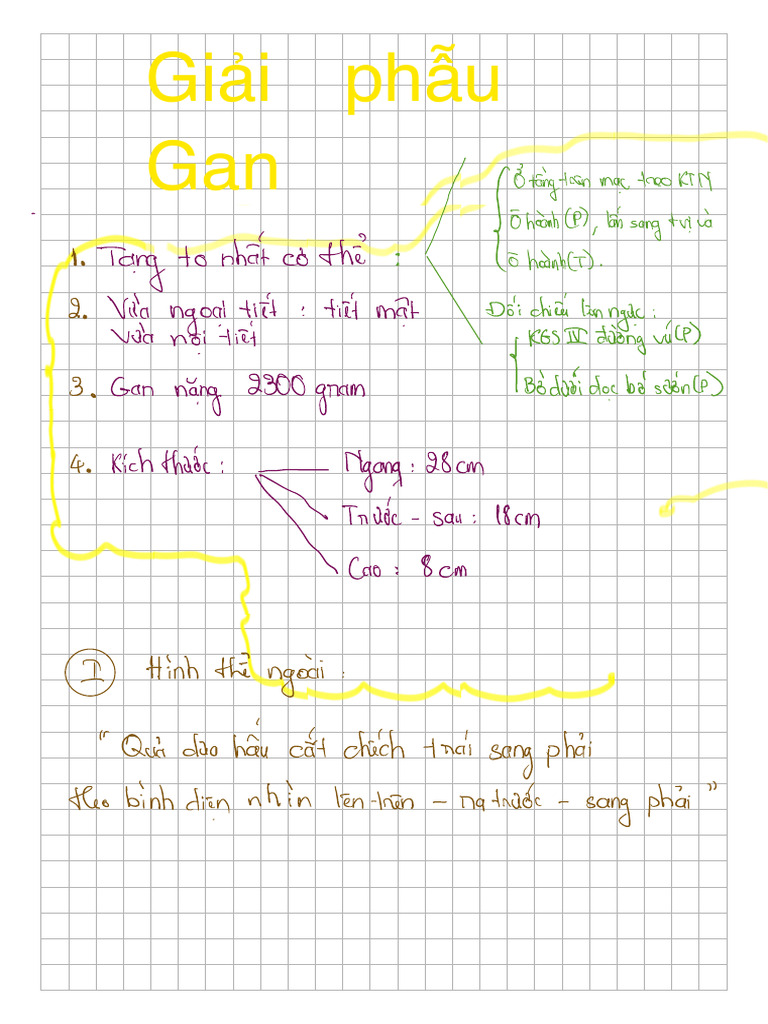 Giải phẫu
Gan
1. Tạng to nhất cơ thể :
Ở tầng trên mạc treo KTN
Ô hoành (P), lấn sang t vị và
Ô hoành (T).
2. Vừa ngoại tiết : tiết mật
Vừa nội tiết
Đối chiếu lên ngực :
KGS IV đường vú (P)
Bờ dưới dọc bờ sườn (P)
3. Gan nặng 2300 gram
4. Kích thước :
Ngang : 28 cm
Trước - sau : 18 cm
Cao : 8 cm
I Hình thể ngoài :
“ Quả dưa hấu cắt chếch trái sang phải
theo bình diện nhìn lên-trên - ra trước - sang phải ”